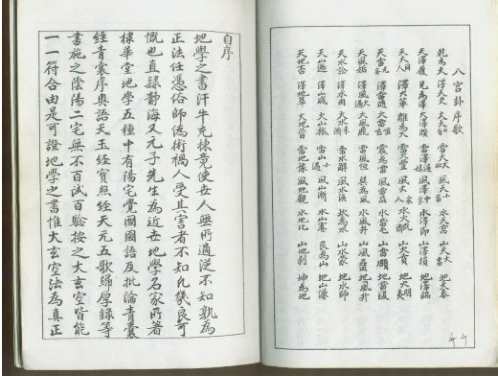 八宮卦序歌
乾為天 澤天夬 火天大有 雷天大壯 風天小畜 水天需 山天大畜 地天泰
天澤履 兌為澤 火澤睽 雷澤歸妹 風澤中孚 水澤節 山澤損 地澤臨
天火同人 澤火革 離為火 雷火豐 風火家人 水火既濟 山火賁 地火明夷
天雷无妄 澤雷隨 火雷噬嗑 震為雷 風雷益 水雷屯 山雷頤 地雷復
天風姤 澤風大過 火風鼎 雷風恆 巽為風 水風井 山風蠱 地風升
天水訟 澤水困 火水未濟 雷水解 風水渙 坎為水 山水蒙 地水師
天山遯 澤山咸 火山旅 雷山小過 風山漸 水山蹇 艮為山 地山謙
天地否 澤地萃 火地晉 雷地豫 風地觀 水地比 山地剝 坤為地
自序
地學之書汗牛充棟竟使世人無所適從不知孰為
正法任憑俗師偽術禍人受其害者不知凡幾良可
慨也直隸靜海又元子先生為近世地學名家所著
棣華堂地學五種中有陽宅覺國語及批論青囊
經青囊序奧語天玉經寶照經天元五歌歸厚錄等
書施之陰陽二宅無不百試百驗按之大玄空皆能
一一符合由是可證地學之書惟大玄空法為真正